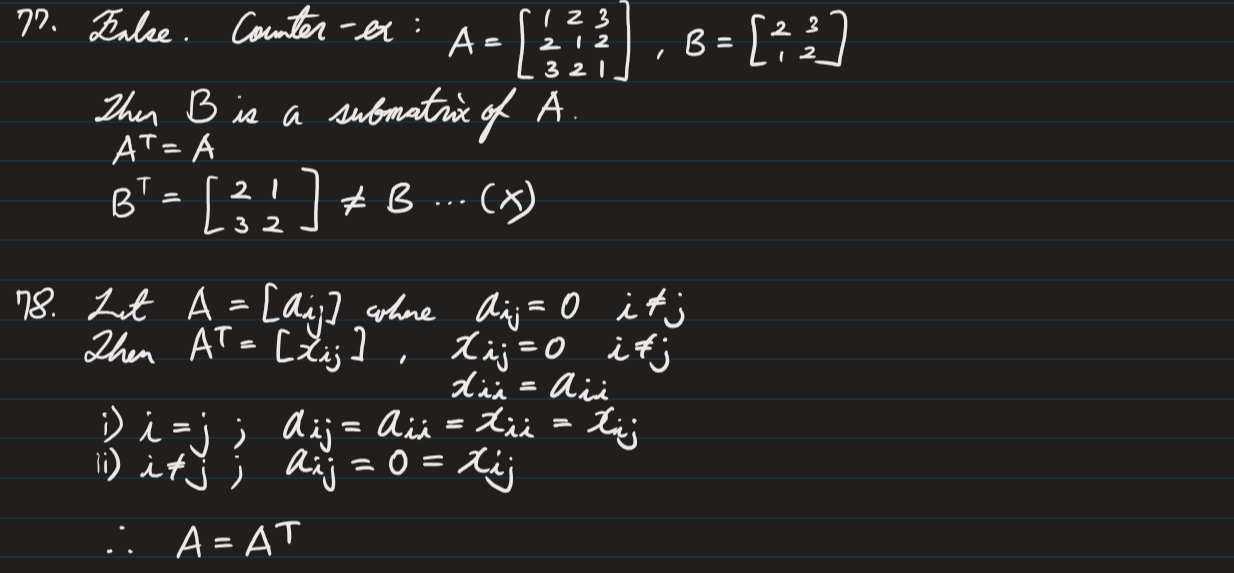 77. False. Counter-ex : A = [1 2 3; 2 1 2; 3 2 1], B = [2 3; 1 2]
Then B is a submatrix of A.
Aᵀ = A
Bᵀ = [2 1; 3 2] ≠ B ... (X)
78. Let A = [aij] where aij = 0 i ≠ j
Then Aᵀ = [xij], xij = 0 i ≠ j
xii = aii
i) i = j ; aij = aii = xii = xij
ii) i ≠ j ; aij = 0 = xij
∴ A = Aᵀ